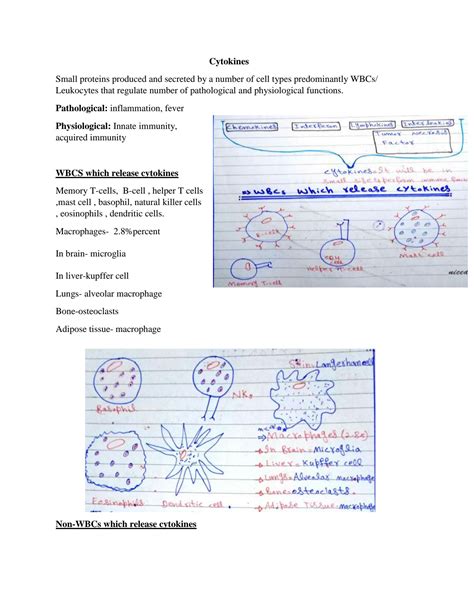 Cytokines
Small proteins produced and secreted by a number of cell types predominantly WBCs/
Leukocytes that regulate number of pathological and physiological functions.
Pathological: inflammation, fever
Physiological: Innate immunity,
acquired immunity
Chemokines Interferon Lymphokines Interleukins
Tumor necrosis
Factor
cytokines It will be in
small size
⇒ WBCs which release cytokines
B-cell
CD4
Helper T-cell
Mast cell
Memory T-cell
WBCS which release cytokines
Memory T-cells, B-cell , helper T cells
,mast cell , basophil, natural killer cells
, eosinophils , dendritic cells.
Macrophages- 2.8%percent
In brain- microglia
In liver-kupffer cell
Lungs- alveolar macrophage
Bone-osteoclasts
Adipose tissue- macrophage
Basophil
NKs
Skin: Langerhans
Eosinophils
Dendritic cell
⇒ Macrophages (2.8%)
→ In Brain= Microglia
→ Liver= Kupffer cell
→ Lungs= Alveolar macrophage
→ Bone= osteoclasts.
→ Adipose Tissue= macrophage
Non-WBCs which release cytokines